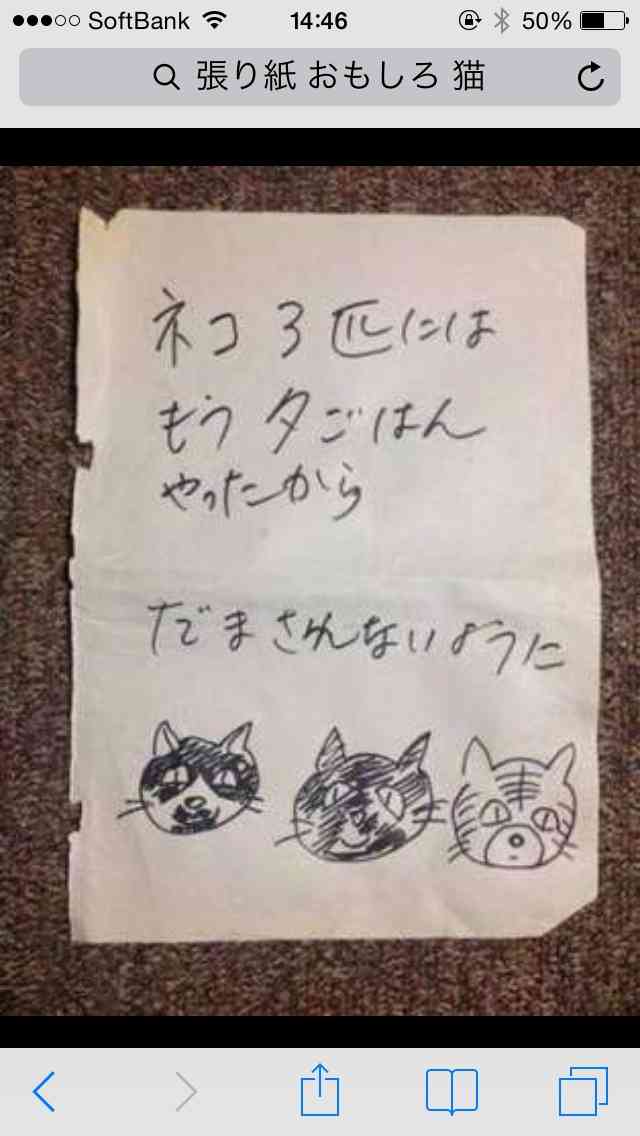 SoftBank 14:46 50%
張り紙 おもしろ 猫
ネコ 3 匹には
もう 夕ごはん
やったから
だまされんないように